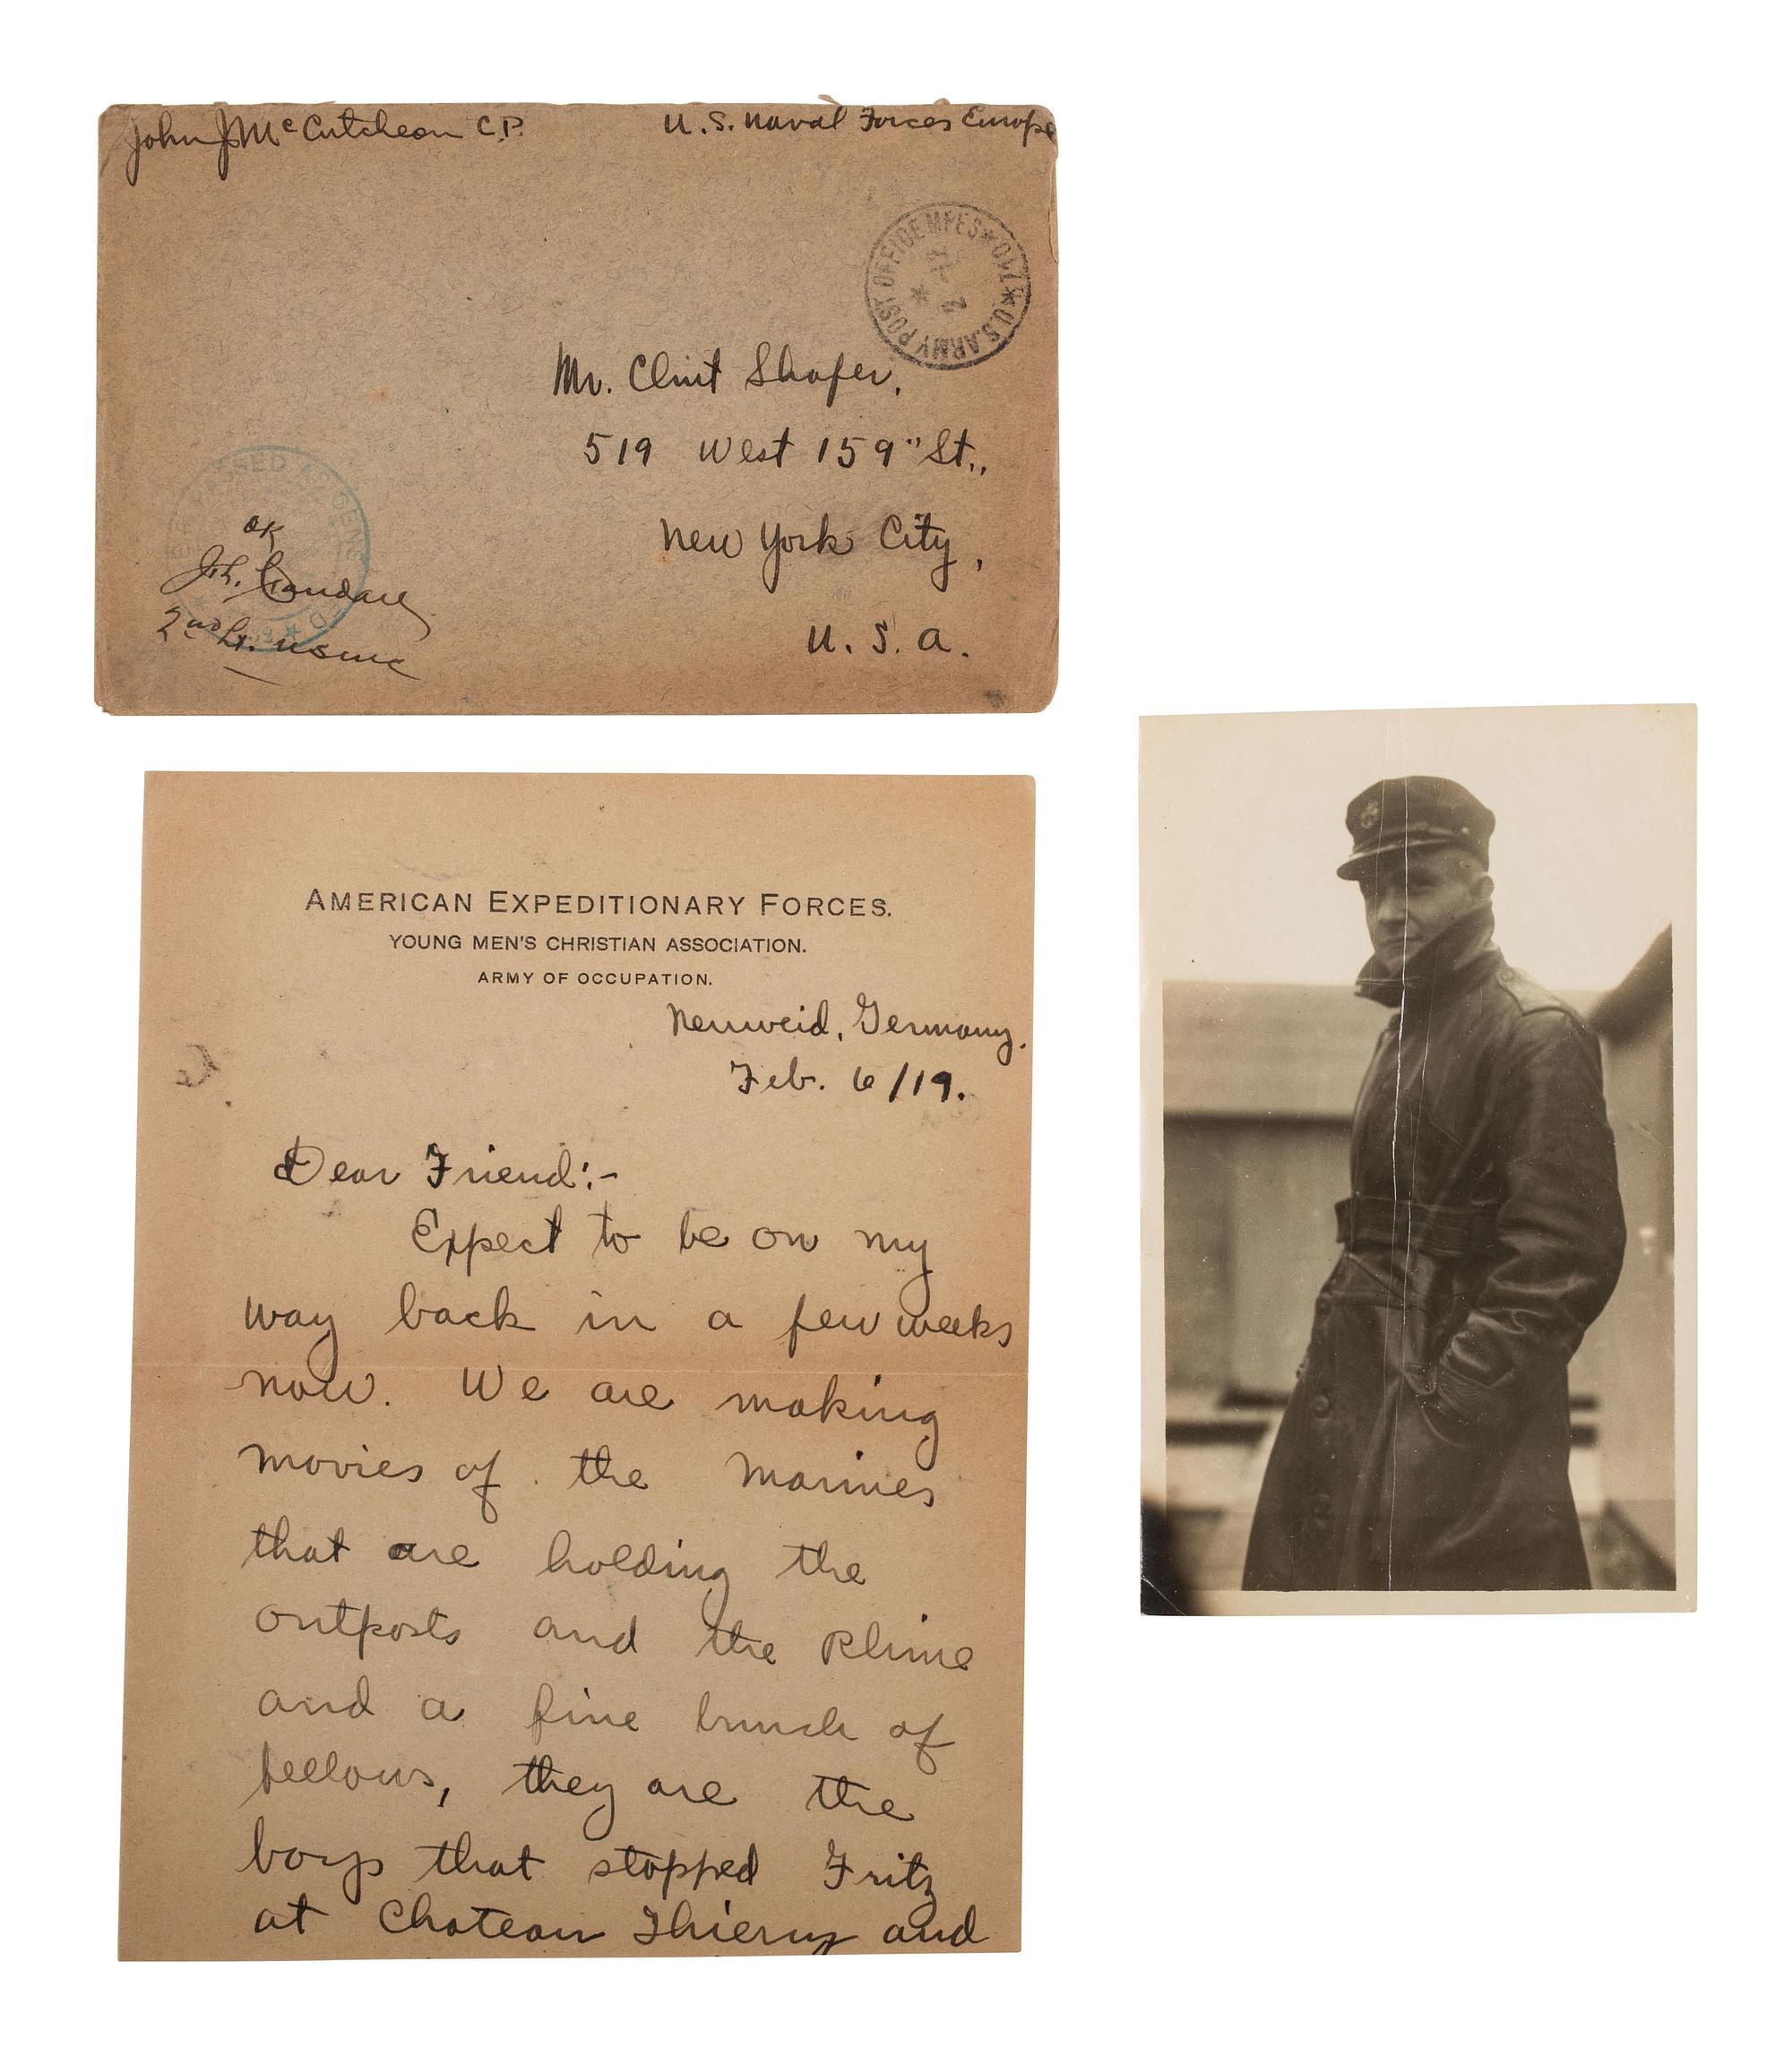 John J McCutcheon C.P. U.S. Naval Forces Europe
U.S. ARMY POST OFFICE MPES * 740 *
Mr. Clint Shafer,
519 West 159" St.,
New York City,
U. S. A.
PASSED AS CENSORED
OK
2nd Lt. USMC
AMERICAN EXPEDITIONARY FORCES.
YOUNG MEN'S CHRISTIAN ASSOCIATION.
ARMY OF OCCUPATION.
Neuweid, Germany.
Feb. 6/19.
Dear Friend:-
Expect to be on my
way back in a few weeks
now. We are making
movies of the Marines
that are holding the
outposts and the Rhine
and a fine bunch of
fellows, they are the
boys that stopped Fritz
at Chateau Thierry and